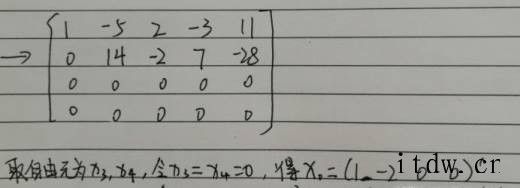 1 -5 2 -3 11
→ 0 14 -2 7 -28
0 0 0 0 0
0 0 0 0 0
取自由元为x₃,x₄,令x₃=x₄=0,得x₀=(1,-2,0,0)ᵀ
itdw.cr